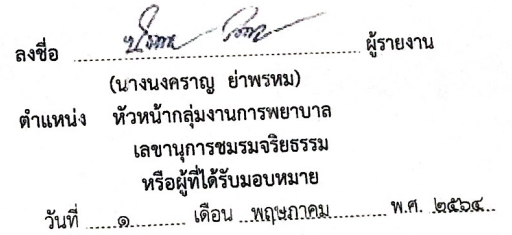 ลงชื่อ ........................................ ผู้รายงาน
(นางนงคราญ ย่าพรหม)
ตำแหน่ง หัวหน้ากลุ่มงานการพยาบาล
เลขานุการชมรมจริยธรรม
หรือผู้ที่ได้รับมอบหมาย
วันที่ ......๑...... เดือน ..พฤษภาคม.......... พ.ศ. ๒๕๖๔